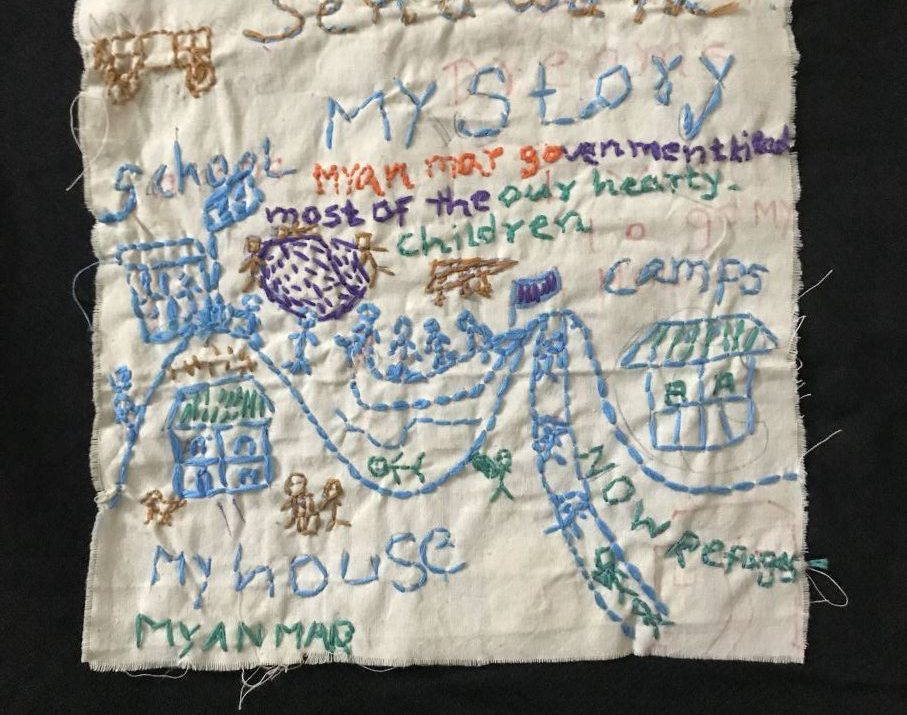 MY Story
School
Myanmar government killed
most of the our hearty.
children
camps
NOW Refuges
My house
MYANMAR